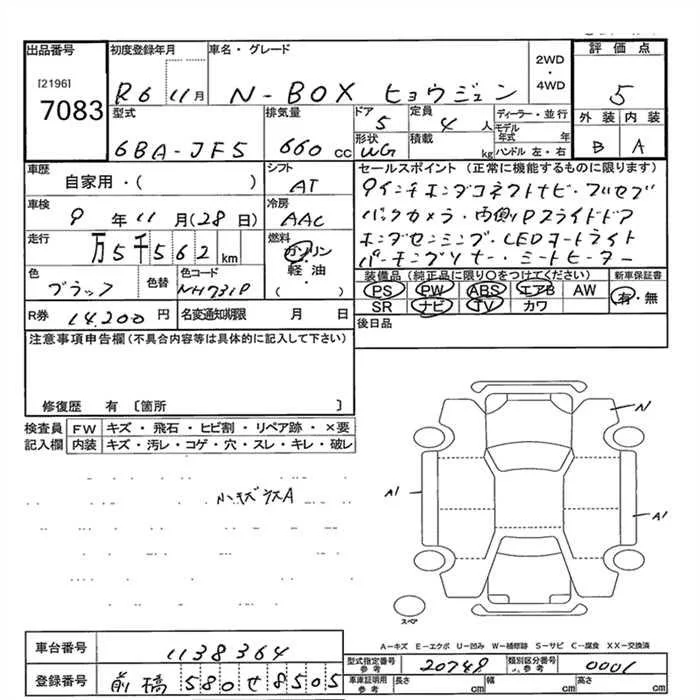 出品番号
[2196]
7083
初度登録年月
R6 11月
車名・グレード
N-BOX ヒョウジュン
2WD
・
4WD
評価点
5
外装 内装
B A
型式
6BA-JF5
排気量
660 cc
ドア
5
定員
4 人
形状
WG
積載
kg
ディーラー・並行
モデル年式 年
ハンドル 左・右
車歴
自家用・( )
シフト
AT
車検
9年11月(28日)
冷房
AAC
走行
万5千562km
燃料
ガソリン
・
軽油
・
( )
色
ブラック
色替
色コード
NH731P
R券 14,200円
名変通知期限 月 日
セールスポイント(正常に機能するものに限ります)
9インチホンダコネクトナビ・フルセグ
バックカメラ・両側Pスライドドア
ホンダセンシング・LEDオートライト
パーキングソナー・シートヒーター
装備品(純正品に限り○をつけてください)
新車保証書
PS PW ABS エアB AW
SR ナビ TV カワ
有・無
後日品
注意事項申告欄(不具合内容等は具体的に記入して下さい)
修復歴 有 〔箇所 〕
検査員記入欄
FW キズ・飛石・ヒビ割・リペア跡・×要
内装 キズ・汚レ・コゲ・穴・スレ・キレ・破レ
小キズ
A
N
A1
A1
スペア
A−キズ E−エクボ U−凹み W−補修跡 S−サビ C−腐食 XX−交換済
車台番号 1138364
登録番号 前橋 580せ8505
型式指定番号
参考
20748
類別区分番号
参考
0001
車庫証明用
参考
長さ cm
幅 cm
高さ cm